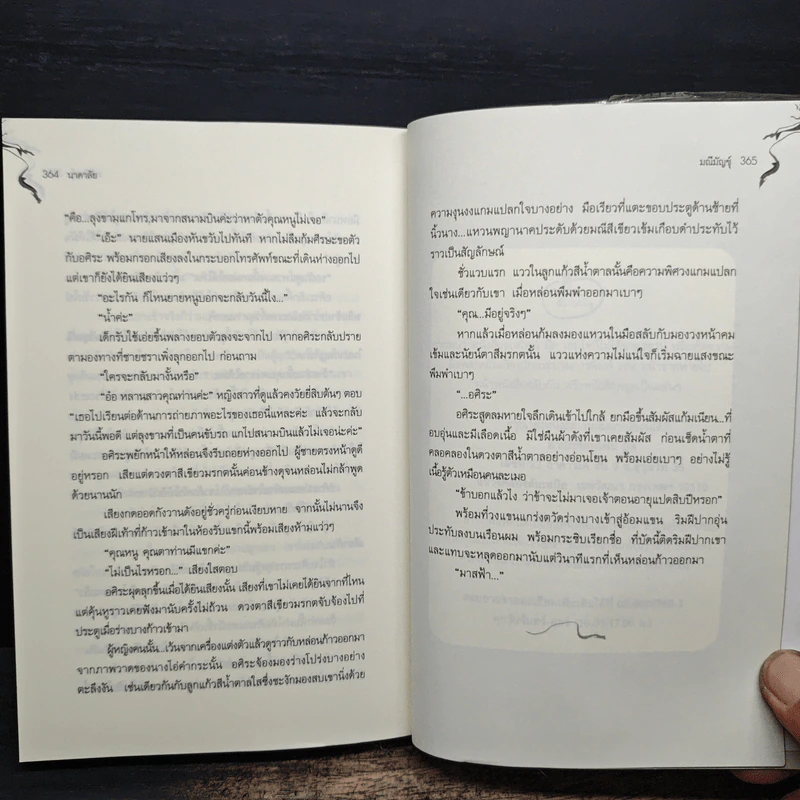 364 นาคาลัย
“คือ...ลุงขามแกโทร.มาจากสนามบินค่ะว่าหาตัวคุณหนูไม่เจอ”
“เอ๊ะ” นายแสนเมืองหันขวับไปทันที หากไม่ลืมก้มศีรษะขอตัว
กับอศิระ พร้อมกรอกเสียงลงในกระบอกโทรศัพท์ขณะที่เดินห่างออกไป
แต่เขาก็ยังได้ยินเสียงแว่วๆ
“อะไรกัน ก็ไหนยายหนูบอกจะกลับวันนี้ไง...”
“น้ำค่ะ”
เด็กรับใช้เอ่ยขึ้นพลางยอบตัวลงจะจากไป หากอศิระกลับปราย
ตามองทางที่ชายชราเพิ่งลุกออกไป ก่อนถาม
“ใครจะกลับมางั้นหรือ”
“อ๋อ หลานสาวคุณท่านค่ะ” หญิงสาวที่ดูแล้วคงวัยยี่สิบต้นๆ ตอบ
“เธอไปเรียนต่อด้านการถ่ายภาพอะไรของเธอนี่แหละค่ะ แล้วจะกลับ
มาวันนี้พอดี แต่ลุงขามที่เป็นคนขับรถ แกไปสนามบินแล้วไม่เจอน่ะค่ะ”
อศิระพยักหน้าให้หล่อนจึงรีบถอยห่างออกไป ผู้ชายตรงหน้าดูดี
อยู่หรอก เสียแต่ดวงตาสีเขียวมรกตนั้นค่อนข้างดุจนหล่อนไม่กล้าพูด
ด้วยนานนัก
เสียงกดออดกังวานดังอยู่ชั่วครู่ก่อนเงียบหาย จากนั้นไม่นานจึง
เป็นเสียงฝีเท้าที่ก้าวเข้ามาในห้องรับแขกนี้พร้อมเสียงห้ามแว่วๆ
“คุณหนู คุณตาท่านมีแขกค่ะ”
“ไม่เป็นไรหรอก...” เสียงใสตอบ
อศิระผุดลุกขึ้นเมื่อได้ยินเสียงนั้น เสียงที่เขาไม่เคยได้ยินจากที่ไหน
แต่คุ้นหูราวเคยฟังมานับครั้งไม่ถ้วน ดวงตาสีเขียวมรกตจับจ้องไปที่
ประตูเมื่อร่างบางก้าวเข้ามา
ผู้หญิงคนนั้น...เว้นจากเครื่องแต่งตัวแล้วดูราวกับหล่อนก้าวออกมา
จากภาพวาดของนางไอ่คำกระนั้น อศิระจ้องมองร่างโปร่งบางอย่าง
ตะลึงงัน เช่นเดียวกันกับลูกแก้วสีน้ำตาลใสซึ่งชะงักมองสบเขานิ่งด้วย
มณีมัญชุ์ 365
ความงุนงงแกมแปลกใจบางอย่าง มือเรียวที่แตะขอบประตูด้านซ้ายที่
นิ้วนาง...แหวนพญานาคประดับด้วยมณีสีเขียวเข้มเกือบดำประทับไว้
ราวเป็นสัญลักษณ์
ชั่วแวบแรก แววในลูกแก้วสีน้ำตาลนั้นคือความพิศวงแกมแปลก
ใจเช่นเดียวกับเขา เมื่อหล่อนพึมพำออกมาเบาๆ
“คุณ...มีอยู่จริงๆ”
หากแล้วเมื่อหล่อนก้มลงมองแหวนในมือสลับกับมองวงหน้าคม
เข้มและนัยน์ตาสีมรกตนั้น แววแห่งความไม่แน่ใจก็เริ่มฉายแสงขณะ
พึมพำเบาๆ
“...อศิระ”
อศิระสูดลมหายใจลึกเดินเข้าไปใกล้ ยกมือขึ้นสัมผัสแก้มเนียน...ที่
อบอุ่นและมีเลือดเนื้อ มิใช่ผืนผ้าดังที่เขาเคยสัมผัส ก่อนเช็ดน้ำตาที่
คลอคลองในดวงตาสีน้ำตาลอย่างอ่อนโยน พร้อมเอ่ยเบาๆ อย่างไม่รู้
เนื้อรู้ตัวเหมือนคนละเมอ
“ข้าบอกแล้วไง ว่าข้าจะไม่มาเจอเจ้าตอนอายุแปดสิบปีหรอก”
พร้อมที่วงแขนแกร่งตวัดร่างบางเข้าสู่อ้อมแขน ริมฝีปากอุ่น
ประทับลงบนเรือนผม พร้อมกระซิบเรียกชื่อ ที่บัดนี้ติดริมฝีปากเขา
และแทบจะหลุดออกมานับแต่วินาทีแรกที่เห็นหล่อนก้าวออกมา
“มาสฟ้า...”